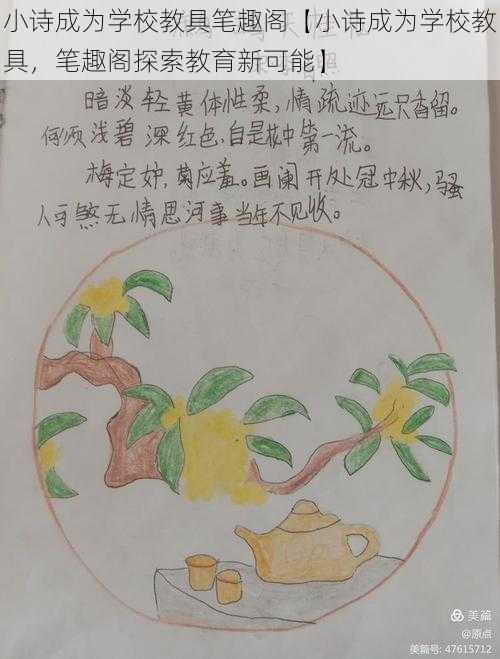 小诗成为学校教具笔趣阁【小诗成为学校教
具，笔趣阁探索教育新可能】
暗淡轻黄体性柔，情疏迹远只香留。
何须浅碧深红色，自是花中第一流。
梅定妒，菊应羞。画阑开处冠中秋，骚
人可煞无情思，何事当年不见收。
美篇
@原点
美篇号: 47615712